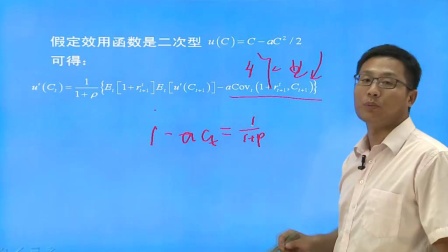 假定效用函数是二次型 u(C)=C−aC²/2
可得:
u'(C_t)=\frac{1}{1+ρ}{E_t[1+r^i_{t+1}]E_t[u'(C_{t+1})]−aCov_t(1+r^i_{t+1},C_{t+1})}
1−aC_t=\frac{1}{1+ρ}